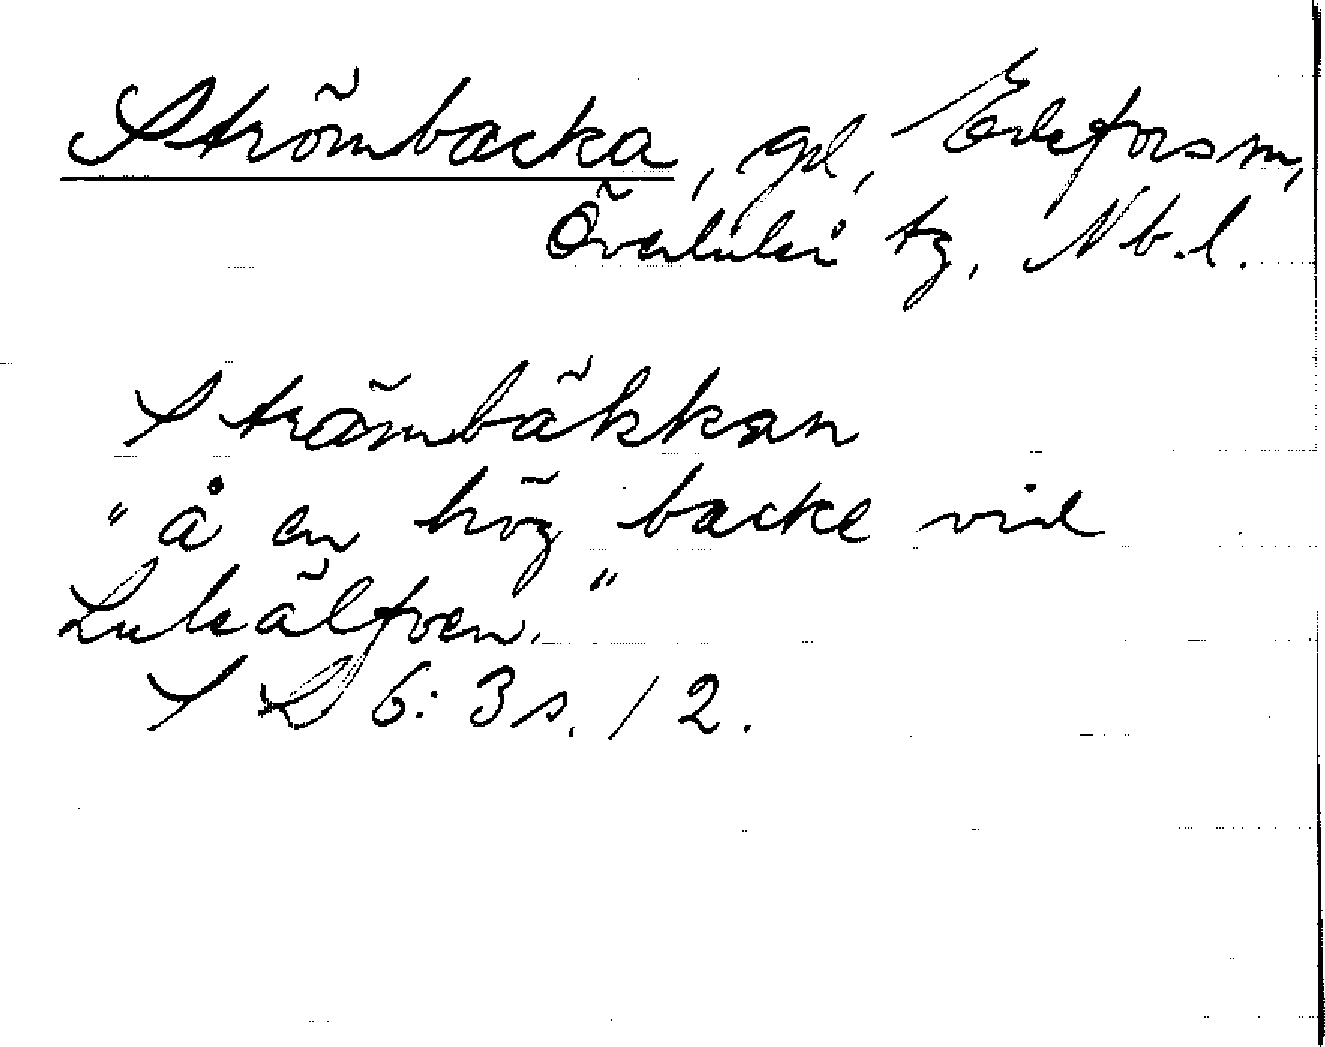 Strömbacka, gd, Edefors sn,
Överluleå tg, Nb.l.
Strämbäkkan
"å en hög backe vid
Luleälfven."
SL 6:3 s. 12.